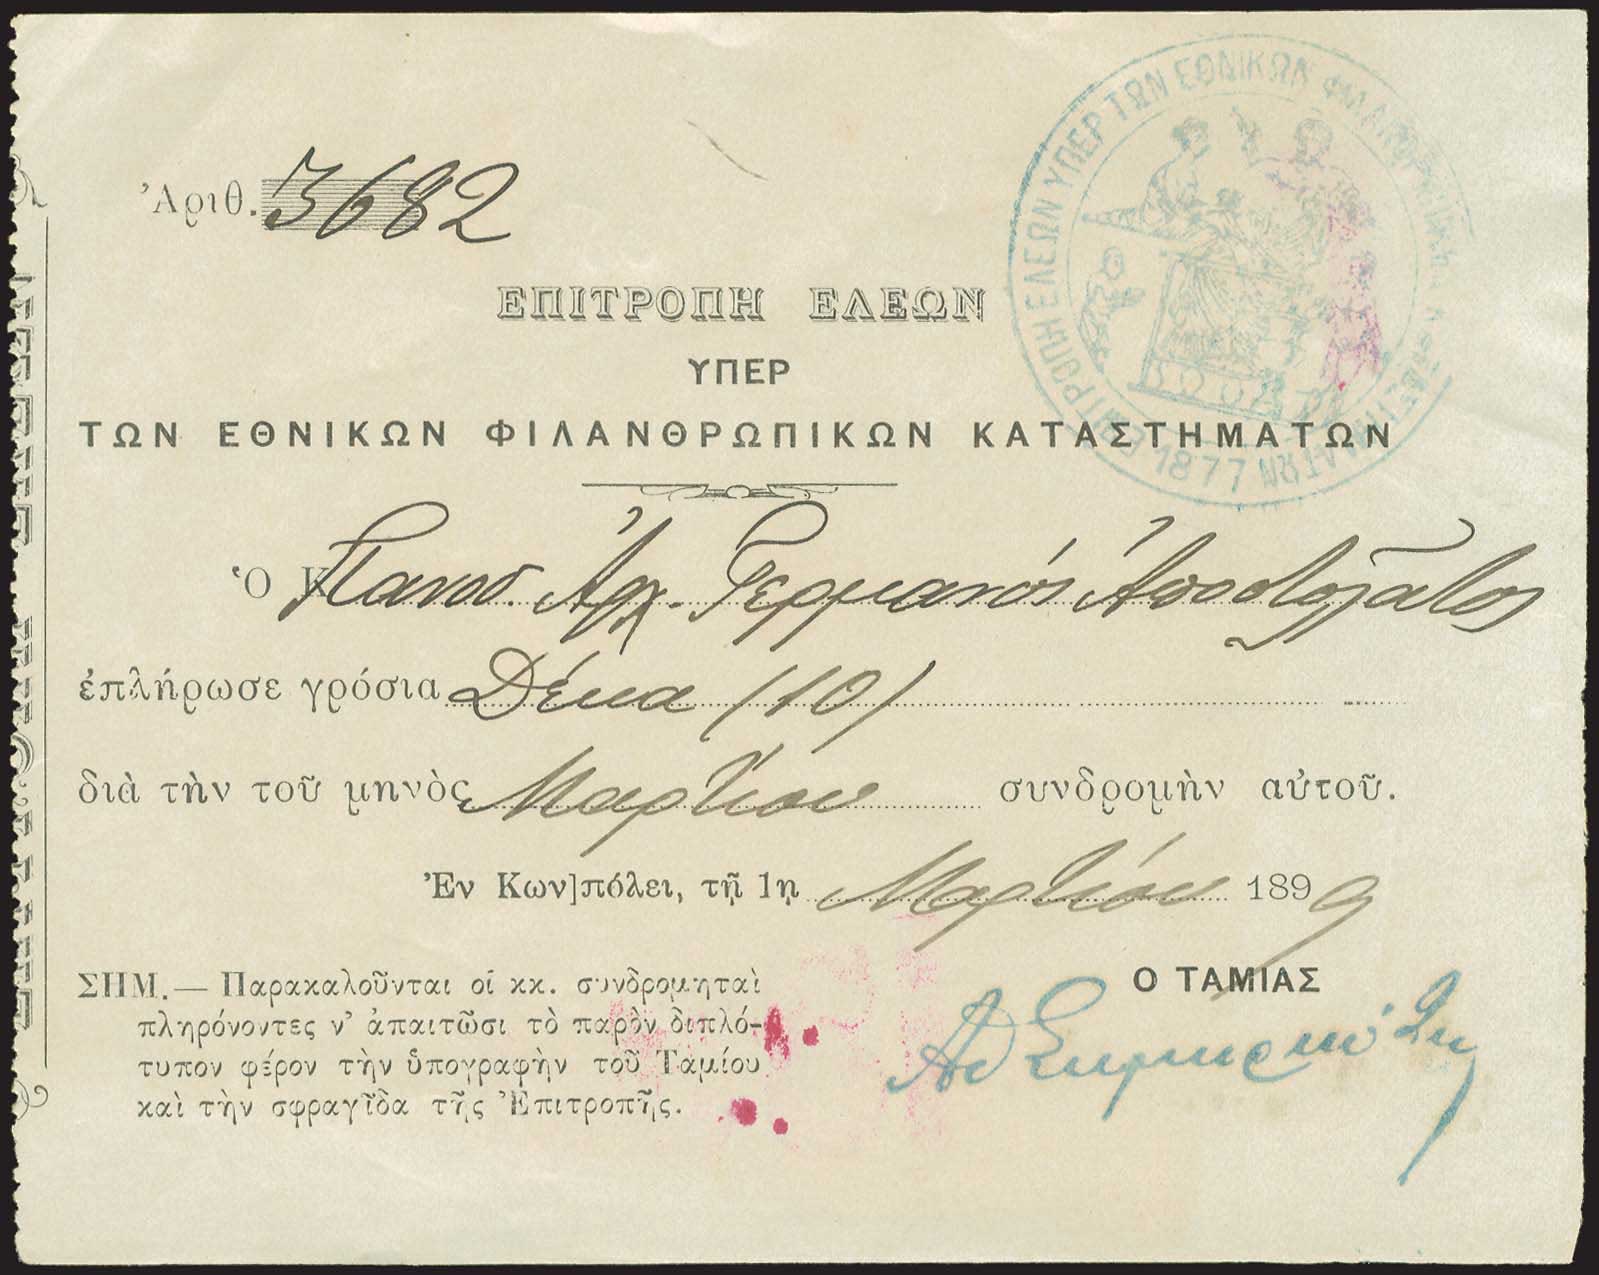 Ἀριθ. 3682
ΕΠΙΤΡΟΠΗ ΕΛΕΩΝ ΥΠΕΡ ΤΩΝ ΕΘΝΙΚΩΝ ΦΙΛΑΝΘΡΩΠΙΚΩΝ ΚΑΤΑΣΤΗΜΑΤΩΝ 1877
ΕΠΙΤΡΟΠΗ ΕΛΕΩΝ
ΥΠΕΡ
ΤΩΝ ΕΘΝΙΚΩΝ ΦΙΛΑΝΘΡΩΠΙΚΩΝ ΚΑΤΑΣΤΗΜΑΤΩΝ
Ὁ Κ Πανοσ. Ἀρχ. Γερμανός Ἀποστολᾶτος
ἐπλήρωσε γρόσια Δέκα (10)
διὰ τὴν τοῦ μηνὸς Μαρτίου συνδρομὴν αὐτοῦ.
Ἐν Κων]πόλει, τῇ 1ῃ Μαρτίου 1899
ΣΗΜ.— Παρακαλοῦνται οἱ κκ. συνδρομηταὶ
πληρόνοντες ν' ἀπαιτῶσι τὸ παρὸν διπλό-
τυπον φέρον τὴν ὑπογραφὴν τοῦ Ταμίου
καὶ τὴν σφραγῖδα τῆς Ἐπιτροπῆς.
Ο ΤΑΜΙΑΣ